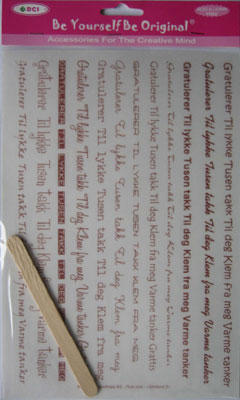 DCI
Be Yourself Be Original
Accessories For The Creative Mind
Gratulerer Til lykke Tusen takk Til deg Klem fra meg Varme tanker
Gratulerer Til lykke Tusen takk Til deg Klem fra meg Varme tanker
GRATULERER TIL LYKKE TUSEN TAKK TIL DEG
Gratulerer Til lykke Tusen takk Til deg Klem fra meg Varme tanker
Gratulerer Til lykke Tusen takk Til deg Klem fra meg
Gratulerer Til lykke Tusen takk Til deg Klem fra meg
GRATULERER TIL LYKKE TUSEN TAKK TIL DEG KLEM FRA MEG
Gratulerer Til lykke Tusen takk Til deg Klem fra meg Varme tanker Grattis
Gratulerer Til lykke Tusen takk Til deg Klem fra meg Varme tanker
Gratulerer Til lykke Tusen takk Til deg Klem fra meg Varme tanker
Gratulerer Til lykke Tusen takk Til deg Klem fra meg Varme tanker